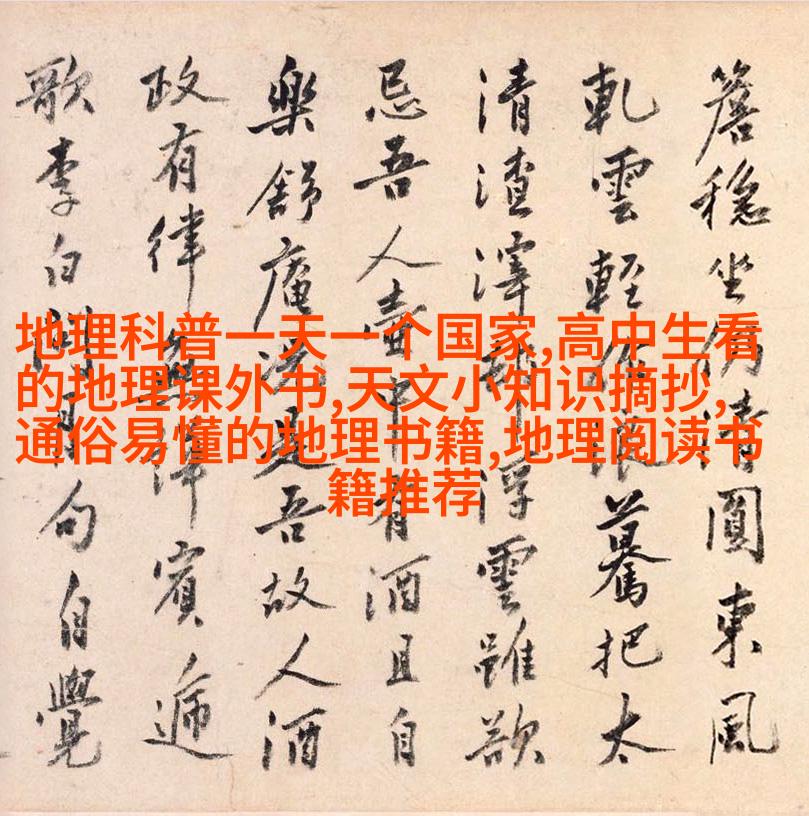 地理科普一天一个国家,高中生看
的地理课外书,天文小知识摘抄,
通俗易懂的地理书籍,地理阅读书
籍推荐
穩坐清圓東風
軋雲輕驀把太
清渣滓浮雲雖欲
忌吾人壺中有酒且自
樂舒庵是吾故人酒
政有律賓遞
歌李白問月句自覺